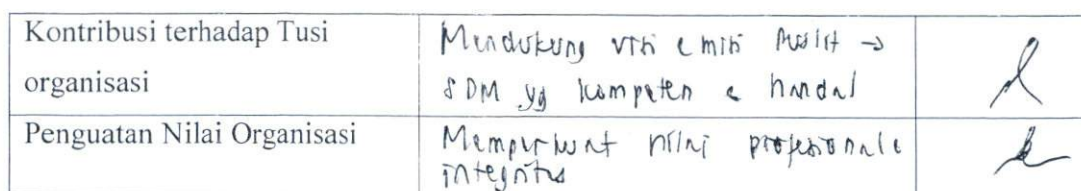 Kontribusi terhadap Tusi
organisasi
Mendukung visi & misi Puslit →
SDM yg kompeten & handal
Penguatan Nilai Organisasi
Memperkuat nilai profesional &
integritas